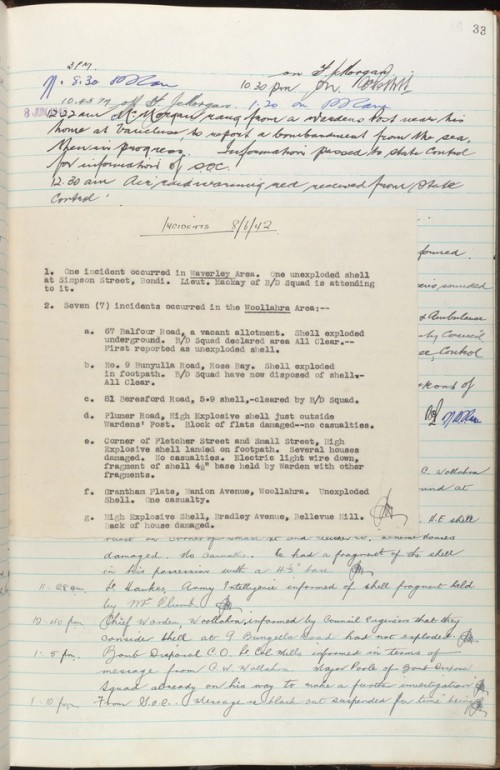 33
3 P.M.
on
8.30
10.30 pm
8 JUN 1942
10.45 PM off Lt. J. Morgan. 1.30 on
12.27 am Mr Morgan rang from a wardens post near his
home at Vaucluse to report a bombardment from the sea,
then in progress. Information passed to State Control
for information of GOC.
12.30 am Air raid warning red received from State
Control.
INCIDENTS 8/6/42
1. One incident occurred in Waverley Area. One unexploded shell
at Simpson Street, Bondi. Lieut. Mackay of B/D Squad is attending
to it.
2. Seven (7) incidents occurred in the Woollahra Area:--
a. 67 Balfour Road, a vacant allotment. Shell exploded
underground. B/D Squad declared area All Clear.--
First reported as unexploded shell.
b. No. 9 Bunyulla Road, Rose Bay. Shell exploded
in footpath. B/D Squad have now disposed of shell--
All Clear.
c. 81 Beresford Road, 5.9 shell,-cleared by B/D Squad.
d. Plumer Road, High Explosive shell just outside
Wardens' Post. Block of flats damaged--no casualties.
e. Corner of Fletcher Street and Small Street, High
Explosive shell landed on footpath. Several houses
damaged. No casualties. Electric light wire down,
fragment of shell 4½" base held by Warden with other
fragments.
f. Grantham Flats, Manion Avenue, Woollahra. Unexploded
Shell. One casualty.
g. High Explosive Shell, Bradley Avenue, Bellevue Hill.
Back of house damaged.
formed.
sounded
& Ambulance
by Council
Control
of
C. Wollahra
at
H.E shell
damaged. No casualties. He had a fragment of the shell
in his possession with a 4½" base
11.28 am Lt Hawkes, Army Intelligence informed of shell fragment held
by Mr Plumb.
12.40 pm Chief Warden, Woollahra, informed by Council Engineer that they
consider shell at 9 Bungella Road had not exploded.
1.5 pm Bomb Disposal C.O. Lt Col Mills informed in terms of
message from C.W. Wollahra. Major Poole of Bomb Disposal
Squad already on his way to make a further investigation
1.10 pm From G.O.C. Message re black out suspended for time being